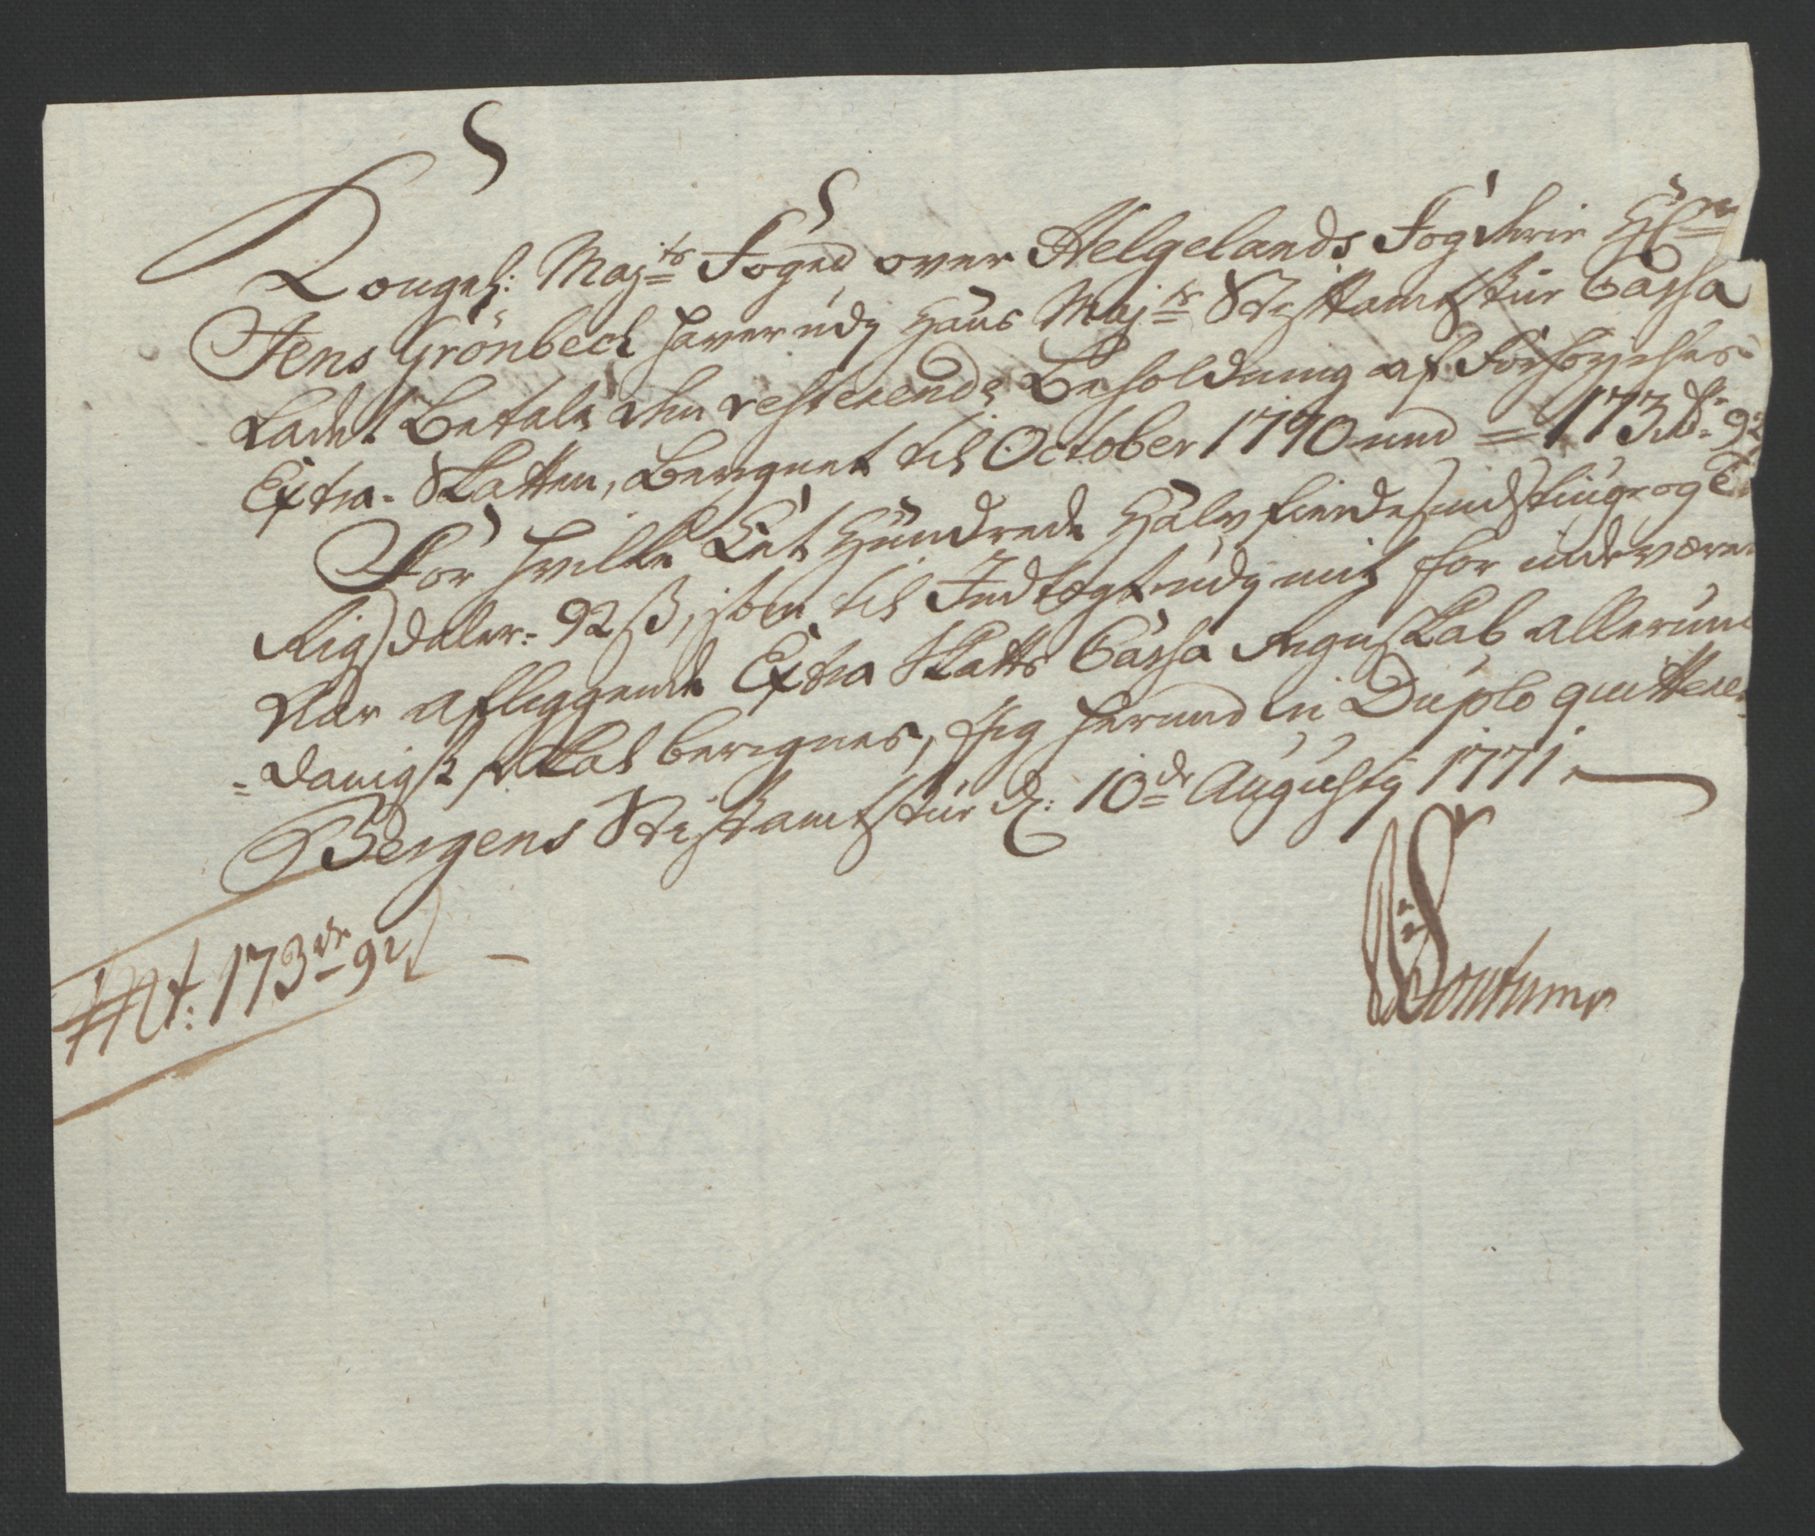 Kongel: Maj:ts Foged over Helgelands Fogderie Hr:
Jens Grönbech haver udj Hans Maj:ts Stiftamtstue Cassa
Ladet Betale den resterende Beholdning af Forhöyelses
Extra-Skatten, beregnet til October 1770 med = 173 Rd: 92
For hvilke Eet Hundrede Halvfierdesindstiuge og
Rigsdaler- 92 ß, som til Indtægt udj mit for indeværen
Aar aflæggende Extra Skatts Cassa Regnskab allerun
=danigst skal beregnes, Jeg herved in Duplo quitterer.
Bergens Stiftamtstue d: 10de Augustij 1771.
173 rd 92 ß